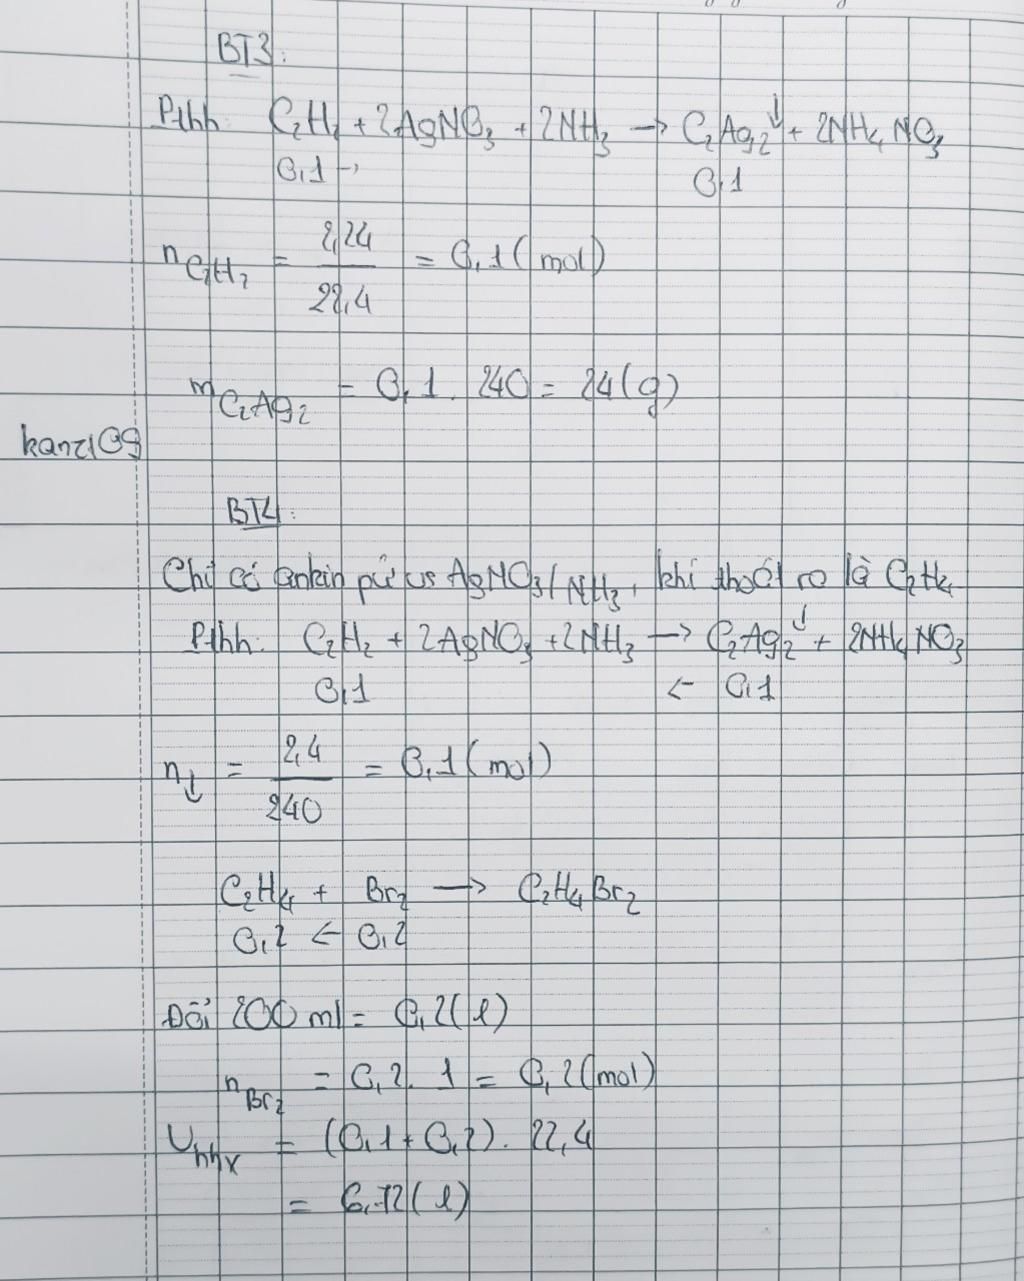 BT3:
Pthh: C2H2 + 2AgNO3 + 2NH3 → C2Ag2↓ + 2NH4NO3
0,1 → 0,1
nC2H2 = 2,24 / 22,4 = 0,1 (mol)
mC2Ag2 = 0,1 . 240 = 24 (g)
kanz109
BT4:
Chỉ có ankin pứ vs AgNO3/NH3, khí thoát ra là C2H4
Pthh: C2H2 + 2AgNO3 + 2NH3 → C2Ag2↓ + 2NH4NO3
0,1 ← 0,1
n↓ = 2,4 / 240 = 0,1 (mol)
C2H4 + Br2 → C2H4Br2
0,2 ← 0,2
Đổi 200 ml = 0,2 (l)
nBr2 = 0,2 . 1 = 0,2 (mol)
VhhX = (0,1 + 0,2) . 22,4
= 6,72 (l)